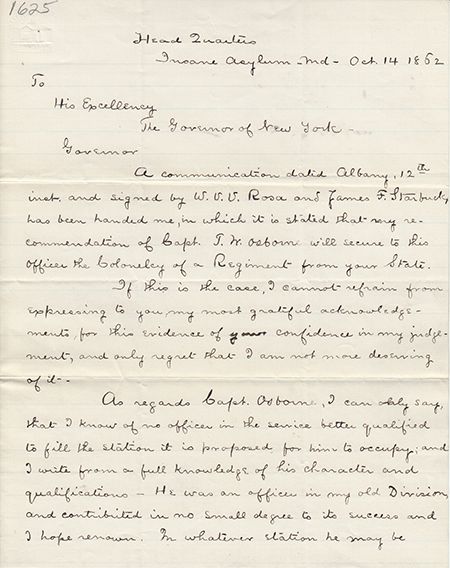 1625
Head Quarters
Insane Asylum - Md - Oct 14 1862
To
His Excellency
The Governor of New York -
Governor
A communication dated Albany, 12th
inst. and signed by W. V. V. Rosa and James F. Starbuck,
has been handed me, in which it is stated that my re-
commendation of Capt. T. W. Osborne will secure to this
officer the Colonelcy of a Regiment from your State.
If this is the case, I cannot refrain from
expressing to you, my most grateful acknowledge-
ments, for this evidence of your confidence in my judge-
ment, and only regret that I am not more deserving
of it -
As regards Capt. Osborne, I can only say,
that I know of no officer in the service better qualified
to fill the station it is proposed for him to occupy; and
I write from a full knowledge of his character and
qualifications - He was an officer in my old Division,
and contributed in no small degree to its success and
I hope renown. In whatever station he may be